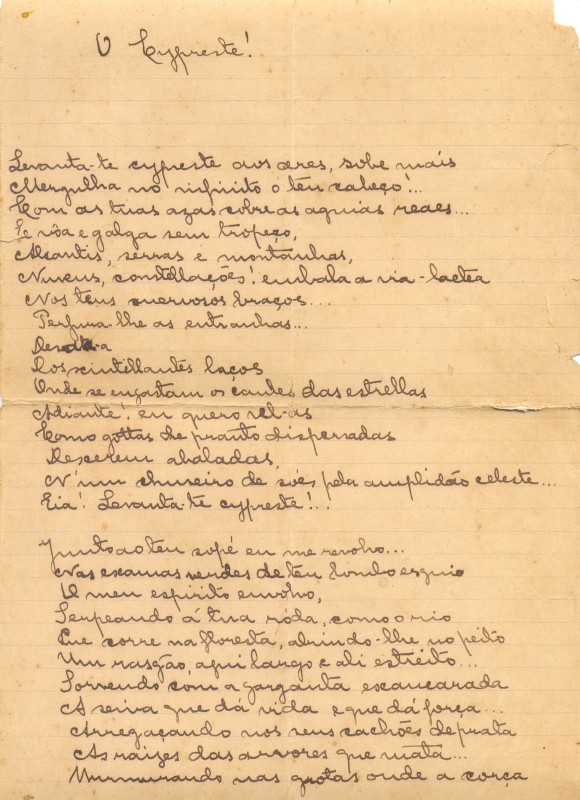 O Cypreste!
Levanta-te cypreste aos ares, sobe mais
Mergulha no infinito o teu cabeço!...
Com as tuas azas sobre as aguias reaes...
Se vôa e galga sem tropeço,
Alcantis, serras e montanhas,
Nuvens, constellações! embala a via-lactea
Nos teus nervosos braços...
Perfura-lhe as entranhas...
Dos scintillantes laços
Onde se engastam os das estrellas
Adiante! eu quero vel-as
Como gottas de pranto dispersadas
Descerem abaladas,
N'um chuveiro de soes pela amplidão celeste...
Eia! Levanta-te cypreste!...
Junto ao teu sopé eu me revolvo...
Nas escamas verdes de teu lombo esguio
O meu espirito envolvo,
Serpeando á tua róda, como o rio
Que corre na floresta, abrindo-lhe no peito
Um rasgão, aqui largo e ali estreito...
Sorvendo com a garganta escancarada
A seiva que dá vida e que dá força...
Arregaçando nos seus cachões de prata
As raizes das arvores que mata...
Murmurando nas grotas onde a corça